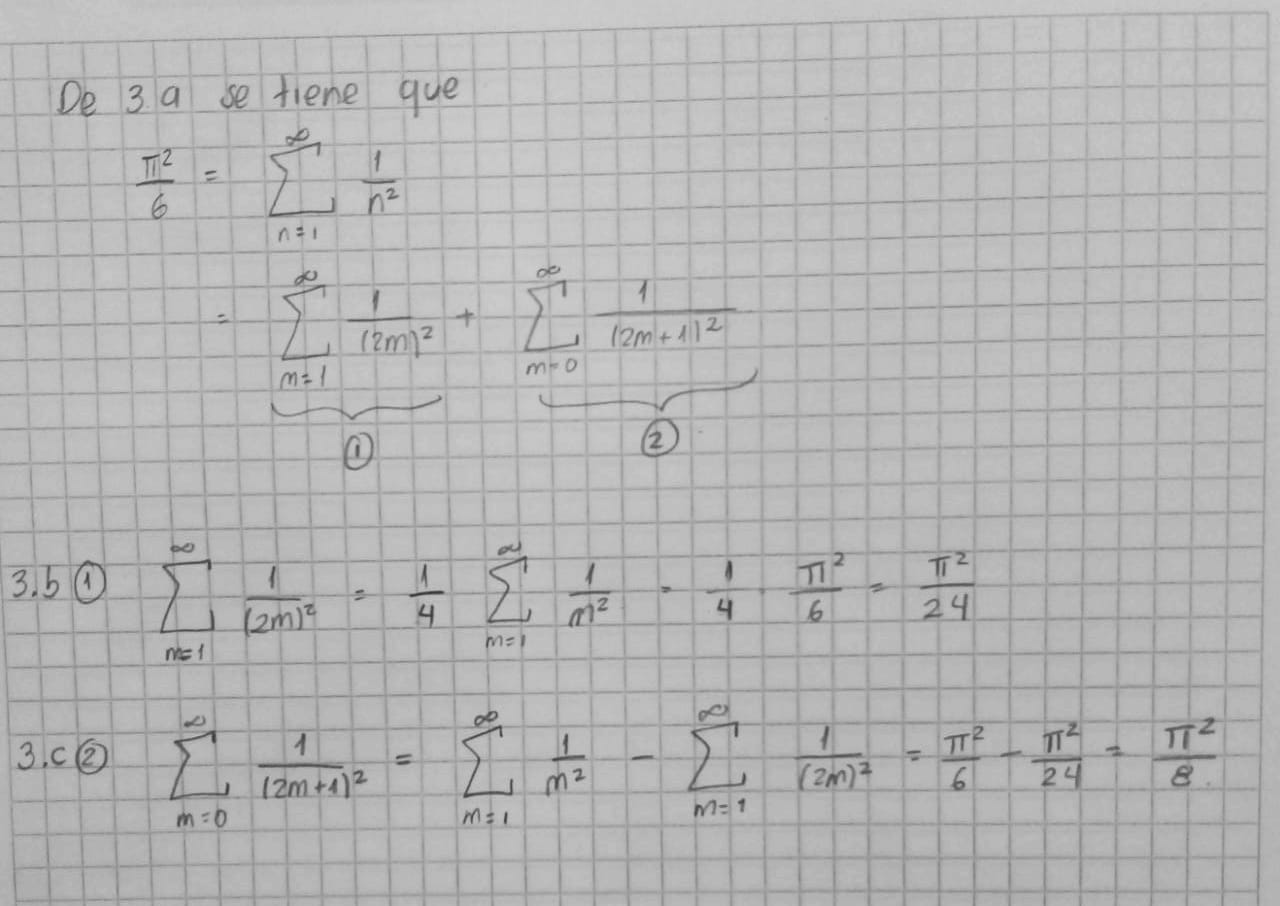 De 3.a se tiene que
π²/6 = ∑_{n=1}^{∞} 1/n²
= ∑_{m=1}^{∞} 1/(2m)² + ∑_{m=0}^{∞} 1/(2m+1)²
① ②
3.b ① ∑_{m=1}^{∞} 1/(2m)² = 1/4 ∑_{m=1}^{∞} 1/m² = 1/4 · π²/6 = π²/24
3.c ② ∑_{m=0}^{∞} 1/(2m+1)² = ∑_{m=1}^{∞} 1/m² - ∑_{m=1}^{∞} 1/(2m)² = π²/6 - π²/24 = π²/8.